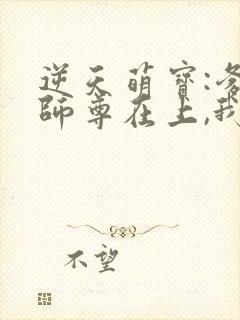 逆天萌宝:爹
師尊在上,我
不望